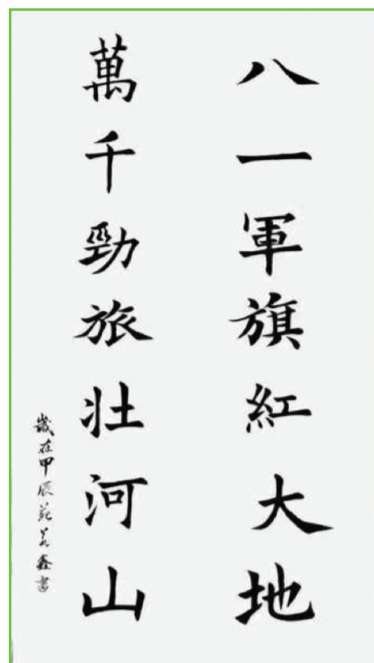 八一軍旗紅大地
萬千勁旅壯河山
歲在甲辰苑芳鑫書